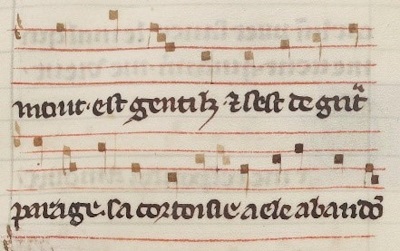 mout est gentilz ⁊ sest de grāt
parage. sa cortoisie a ele abandō